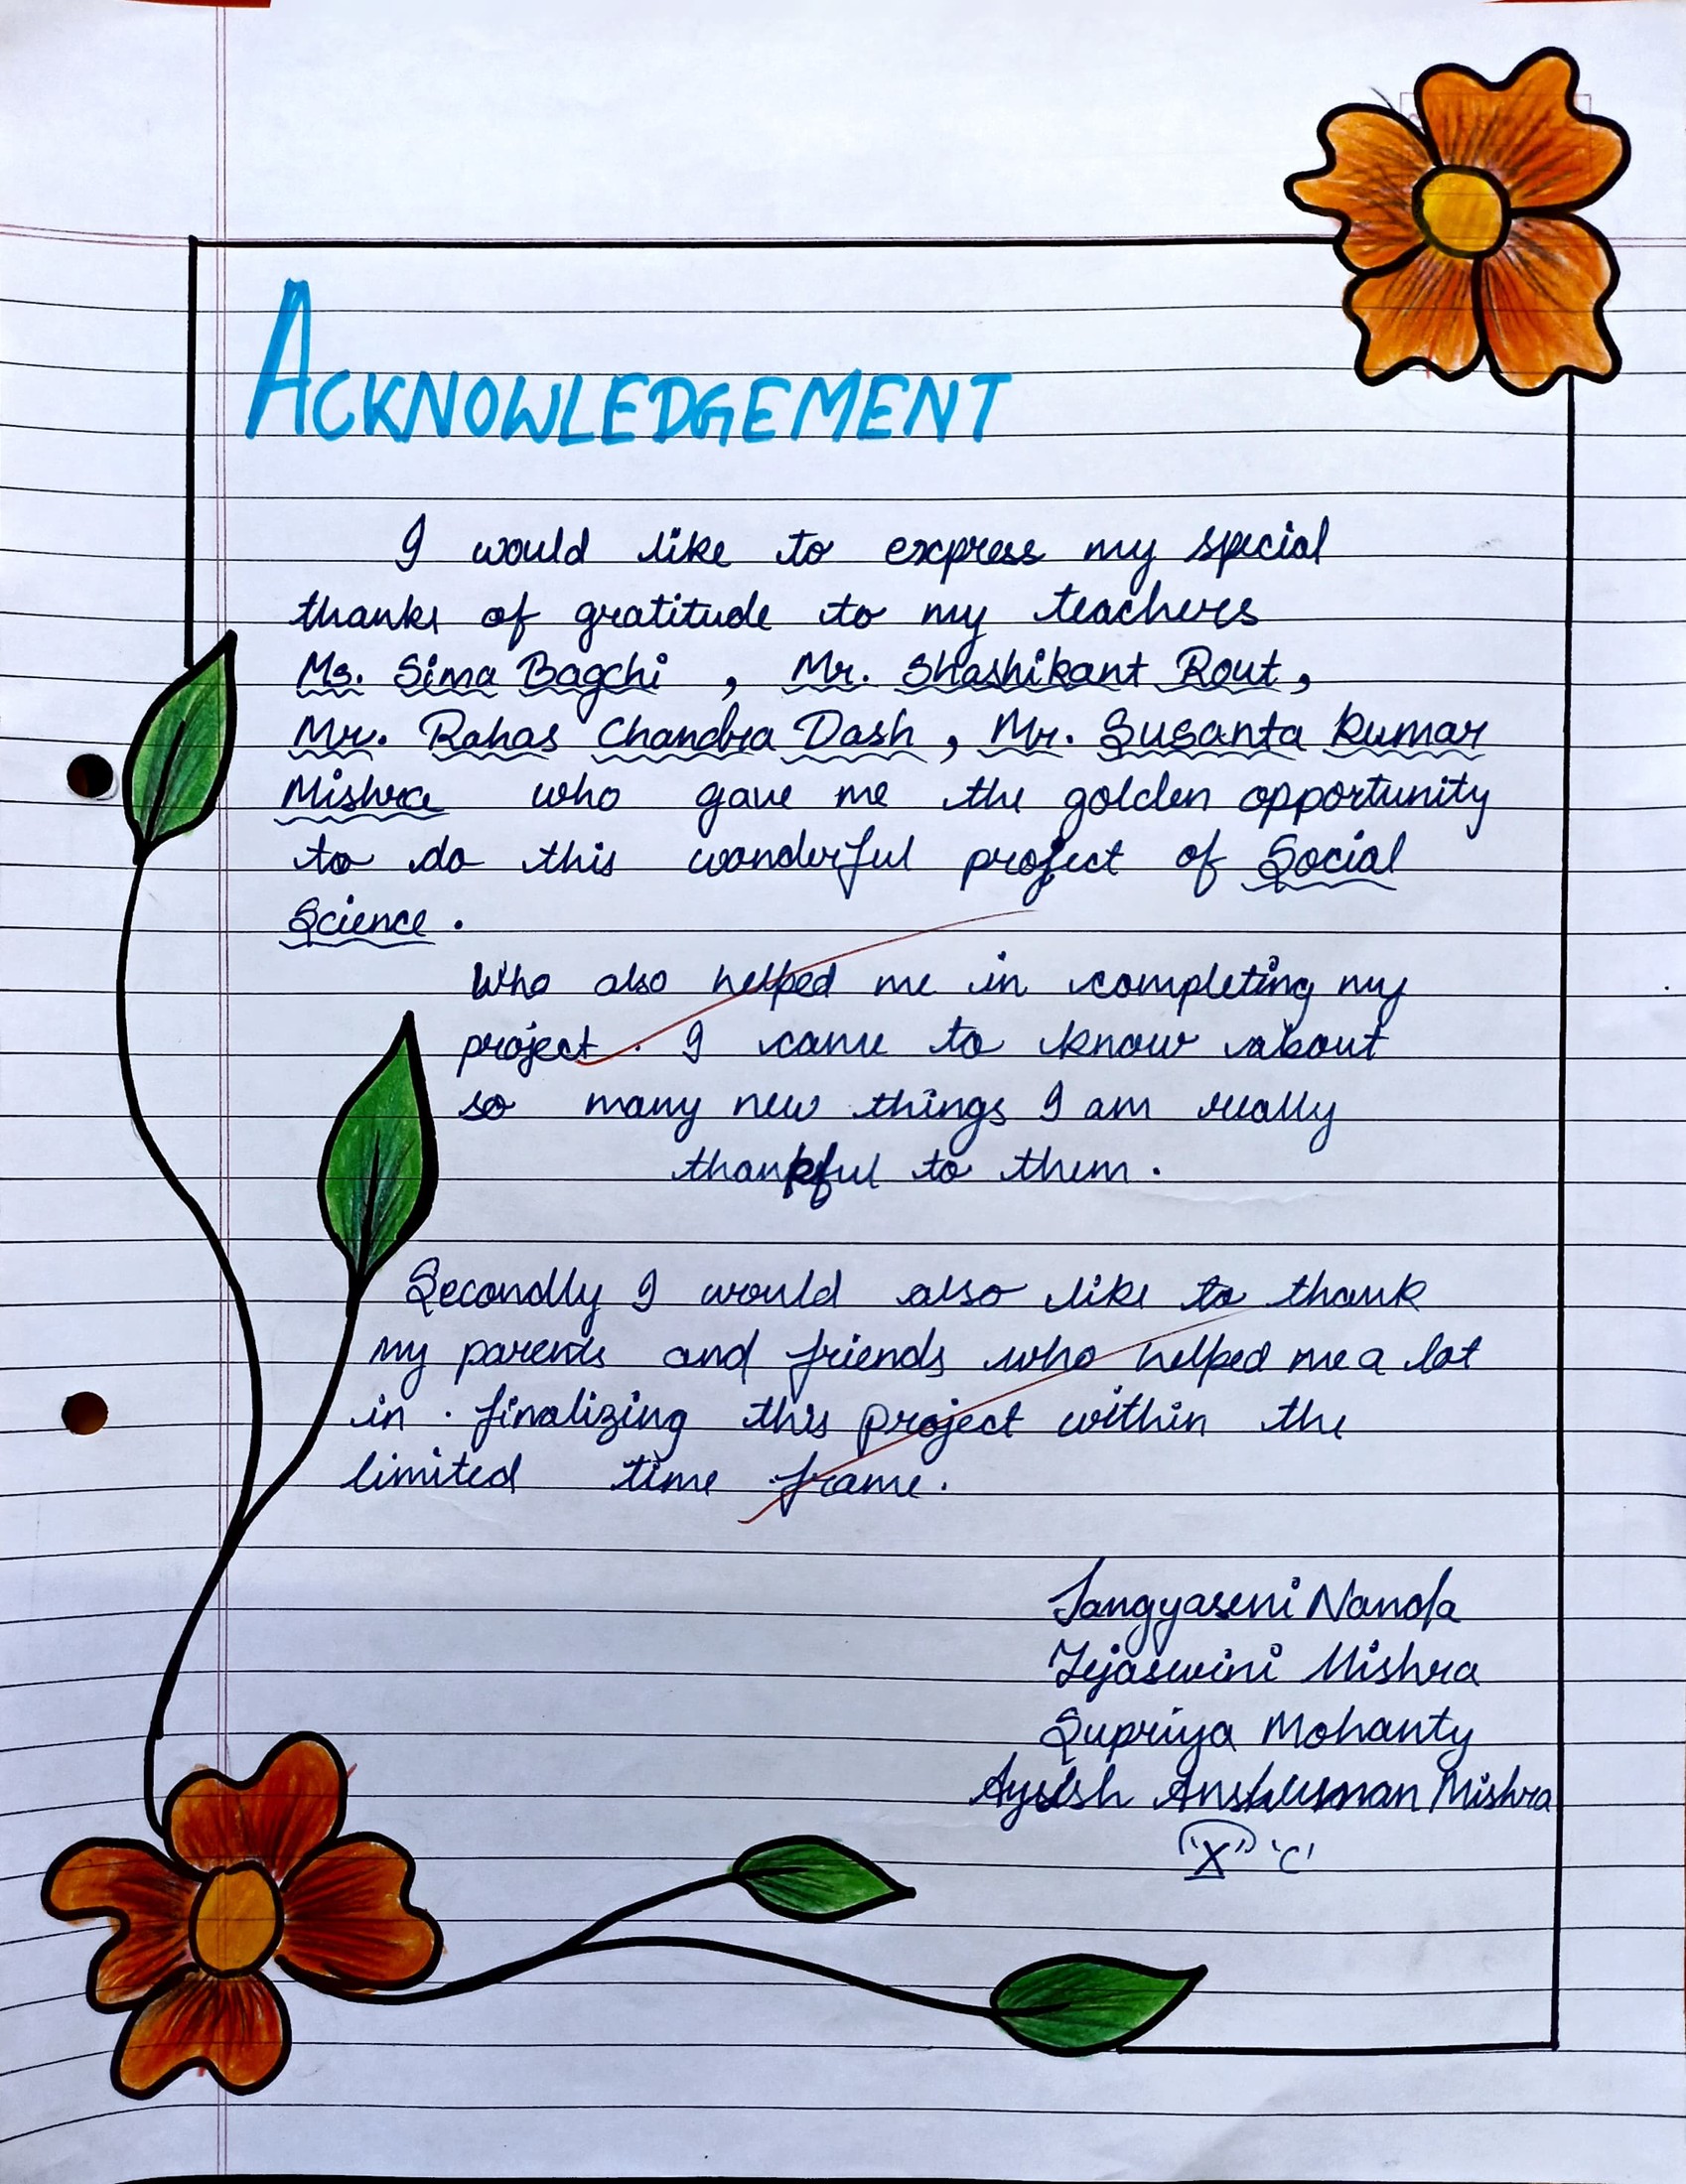 ACKNOWLEDGEMENT
I would like to express my special
thanks of gratitude to my teachers
Ms. Sima Bagchi , Mr. Shashikant Rout,
Mr. Rahas Chandra Dash , Mr. Susanta Kumar
Mishra who gave me the golden opportunity
to do this wonderful project of Social
Science .
Who also helped me in completing my
project . I came to know about
so many new things I am really
thankful to them .
Secondly I would also like to thank
my parents and friends who helped me a lot
in . finalizing this project within the
limited time frame .
Jangyaseni Nanda
Tejaswini Mishra
Supriya Mohanty
Ayush Anshuman Mishra
"X" 'C'